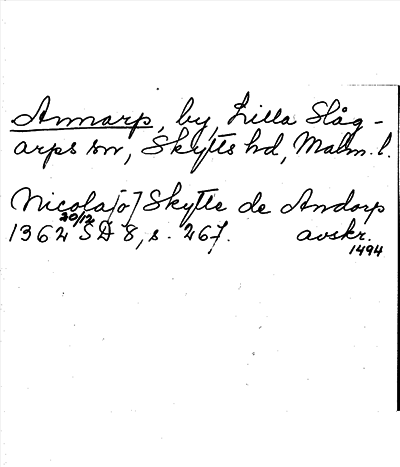 Annarp, by, Lilla Slåg-
arps sn, Skytts hd, Malm. l.
Nicola[o] Skytte de Andorp
20/12
1362 SD 8, s. 267. avskr.
1494